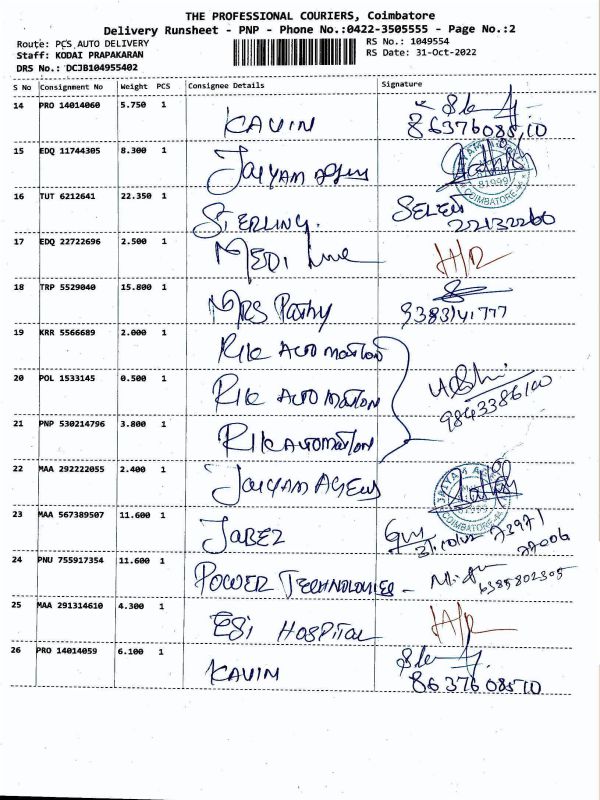 THE PROFESSIONAL COURIERS, Coimbatore
Delivery Runsheet - PNP - Phone No.:0422-3505555 - Page No.:2
Route: PCS AUTO DELIVERY RS No.: 1049554
Staff: KODAI PRAPAKARAN RS Date: 31-Oct-2022
DRS No.: DCJB104955402
S No Consignment No Weight PCS Consignee Details Signature
14 PRO 14014060 5.750 1 KAVIN 8637608510
15 EDQ 11744305 8.300 1 JAIYAM COIMBATORE
16 TUT 6212641 22.350 1 STERLING.
17 EDQ 22722696 2.500 1 MEDI Line H/R
18 TRP 5529040 15.800 1 MRS Pathy 9383141777
19 KRR 5566689 2.000 1 RIK AUTOMATION
20 POL 1533145 0.500 1 RIK AUTOMATION 9843386100
21 PNP 530214796 3.800 1 RIK AUTOMATION
22 MAA 292222055 2.400 1 JAIYAM AGENS COIMBATORE
23 MAA 567389507 11.600 1 JABEZ
24 PNU 755917354 11.600 1 POWER TECHNOLOGIES - 6385802305
25 MAA 291314610 4.300 1 ESI HOSPITAL H/R
26 PRO 14014059 6.100 1 KAVIN 8637608510